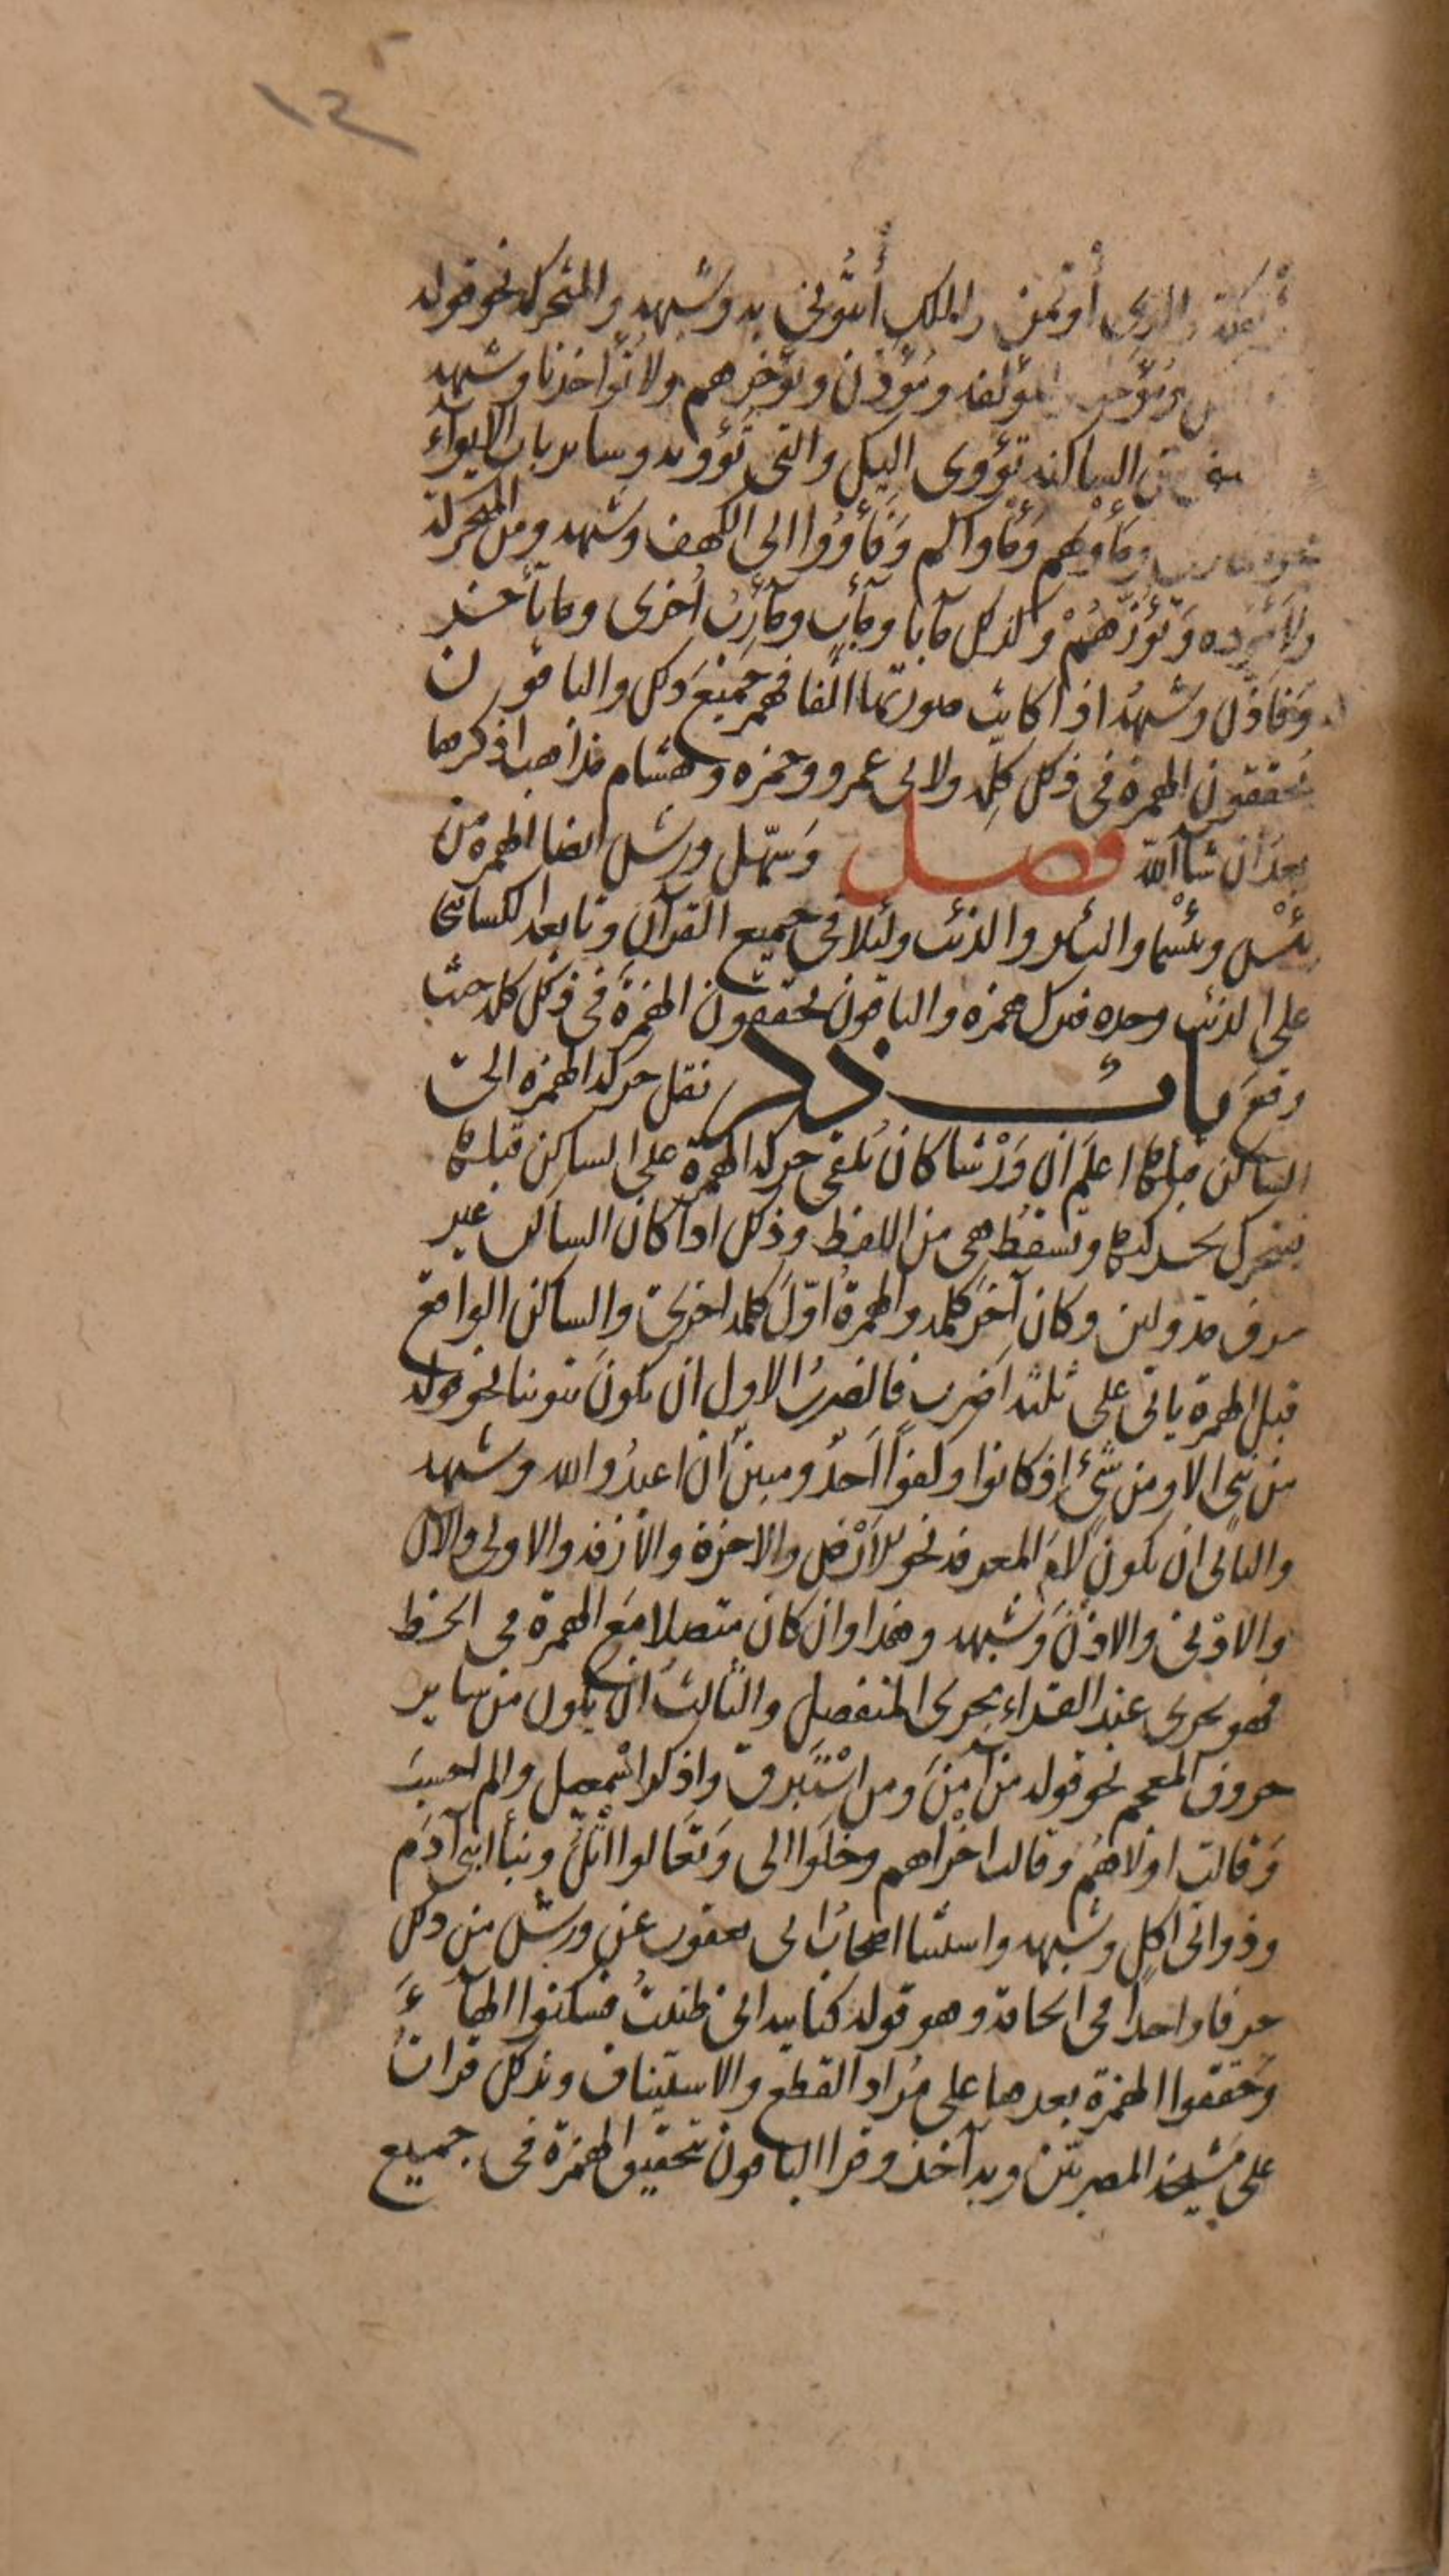 ١٢
والذي أوتمن والملك ائتوني به وشبهه والمتحركة نحو قوله
ويؤخر المؤلفة ومؤذن ويؤخرهم ولا تؤاخذنا وشبهه
من الساكنة تؤوي اليك والتي تؤويه وساير باب الايواء
نحو ومأويهم ومأواكم وفأووا الى الكهف وشبهه ومن المتحركة
ولا يؤده وتؤزهم وكذلك مآبا ومآب ومآرب أخرى وما تأخر
وفاذن وشبهه اذا كانت صورتها الفا فهمز جميع ذلك والباقون
يحققون الهمزة في ذلك كله ولابي عمرو وحمزه وهشام مذاهب اذكرها
بعد ان شآ الله فصل وسهّل ورش ايضا الهمزة من
بئس وبئسما والبئر والذئب ولئلا في جميع القرآن وتابعه الكسائي
على الذئب وحده فترك همزه والباقون يحققون الهمزة في ذلك كله حيث
وقع باب ذكر نقل حركة الهمزة الى
الساكن قبلها اعلم ان ورشا كان يلقي حركة الهمزة على الساكن قبلها
فيتحرك بحركتها وتسقط هي من اللفظ وذلك اذا كان الساكن غير
حرف مد ولين وكان آخر كلمه والهمزة اوّل كلمه اخرى والساكن الواقع
قبل الهمزة ياتي على ثلثه اضرب فالضرب الاول ان يكون تنوينا نحو قوله
من نبي الا ومن شيء اذ كانوا وكفوًا احدٌ ومبين ان اعبدوا الله وشبهه
والثاني ان يكون لام المعرفه نحو الارض والاخرة والأزفه والاولى والان
والاذن والاذن وشبهه وهذا وان كان متصلا مع الهمزة في الخط
فهو يجري عند القراء مجرى المنفصل والثالث ان يكون من ساير
حروف المعجم نحو قوله من آمن ومن استبرق واذكر اسمعيل والم احسب
وقالت اولاهم وقالت اخراهم وخلوا الى وتعالوا اتل ونبأ ابني آدم
وذواتي اكل وشبهه واستثنا اصحاب ابي يعقوب عن ورش من ذلك
حرفا واحدا في الحاقة وهو قوله كتابيه اني ظننت فسكنوا الهآء
وحققوا الهمزة بعدها على مراد القطع والاستيناف وبذلك قرات
على مشيخة المصريين وبه آخذ وقرا الباقون بتحقيق الهمزة في جميع